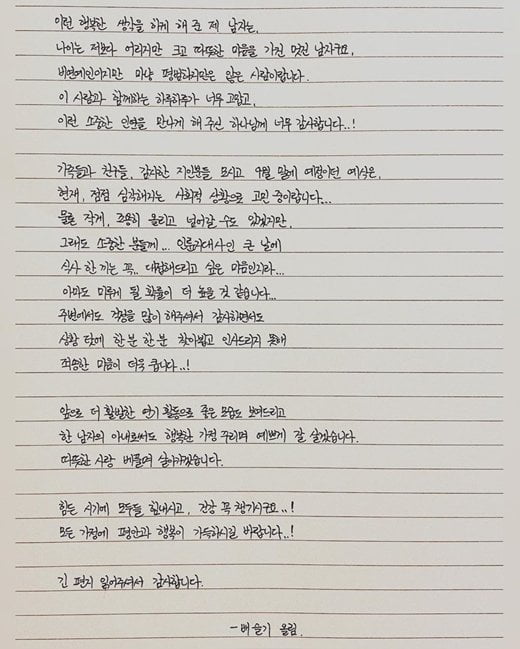 이런 행복한 생각을 하게 해 준 제 남자는,
나이는 저보다 어리지만 크고 따뜻한 마음을 가진 멋진 남자구요,
비연예인이지만 마냥 평범하지만은 않은 사람이랍니다.
이 사람과 함께하는 하루하루가 너무 고맙고,
이런 소중한 인연을 만나게 해 주신 하나님께 너무 감사합니다..!
가족들과 친구들, 감사한 지인분들 모시고 9월 말에 예정이던 예식은,
현재, 점점 심각해지는 사회적 상황으로 고민 중이랍니다...
물론 작게, 조용히 올리고 넘어갈 수도 있겠지만,
그래도 소중한 분들께... 인륜지대사인 큰 날에
식사 한 끼는 꼭.. 대접해드리고 싶은 마음인지라...
아마도 미루게 될 확률이 더 높을 것 같습니다...
주변에서도 걱정을 많이 해주셔서 감사하면서도
상황 탓에 한 분 한 분 찾아뵙고 인사드리지 못해
죄송한 마음이 더욱 큽니다..!
앞으로 더 활발한 연기 활동으로 좋은 모습도 보여드리고
한 남자의 아내로써도 행복한 가정 꾸리며 예쁘게 잘 살겠습니다.
따뜻한 사랑 베풀며 살아가겠습니다.
힘든 시기에 모두들 힘내시고, 건강 꼭 챙기시구요..!
모든 가정에 평안과 행복이 가득하시길 바랍니다..!
긴 편지 읽어주셔서 감사합니다.
- 배슬기 올림.